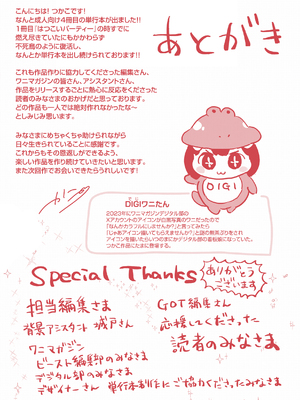 あとがき
こんにちは!つかこです!
なんと成人向け4冊目の単行本が出ました!!
1冊目『はつこいパーティー』の時すでに
燃え尽きていたにもかかわらず
不死鳥のように復活し、
なんとか単行本を出し続けられております!!
これも作品作りに協力してくださった編集さん、
ワニマガジンの皆さん、アシスタントさん、
作品をリリースするごとに熱心に反応をくださった
読者のみなさまのおかげだと思っております。
どの作品も一人では絶対作れなかったな〜
としみじみ思います。
みなさまにめちゃくちゃ助けられながら
日々生きられていることに感謝です。
これからもその恩返しができるよう、
楽しい作品を作り続けていきたいと思います。
また次回作でお会いできたらうれしいです!
DIGI
DIGIワニたん
2023年にワニマガジンデジタル部の
Xアカウントのアイコンが白黒写真のワニだったので
「なんかカラフルにしませんか?」と言ってみたら
「じゃあアイコン描いてもらえませんか?」と謎の無茶ぶりをされ
アイコンを描いたらいつのまにかデジタル部の看板娘になっていた。
つかこ作品にたまに登場する。
Special Thanks
ありがとう
ございます
担当編集さま
背景アシスタント 城戸さん
ワニマガジン
ビースト編集部のみなさま
デジタル部のみなさま
デザイナーさん 単行本制作にご協力くださったみなさま
GOT編集さん
応援してくださった
読者のみなさま